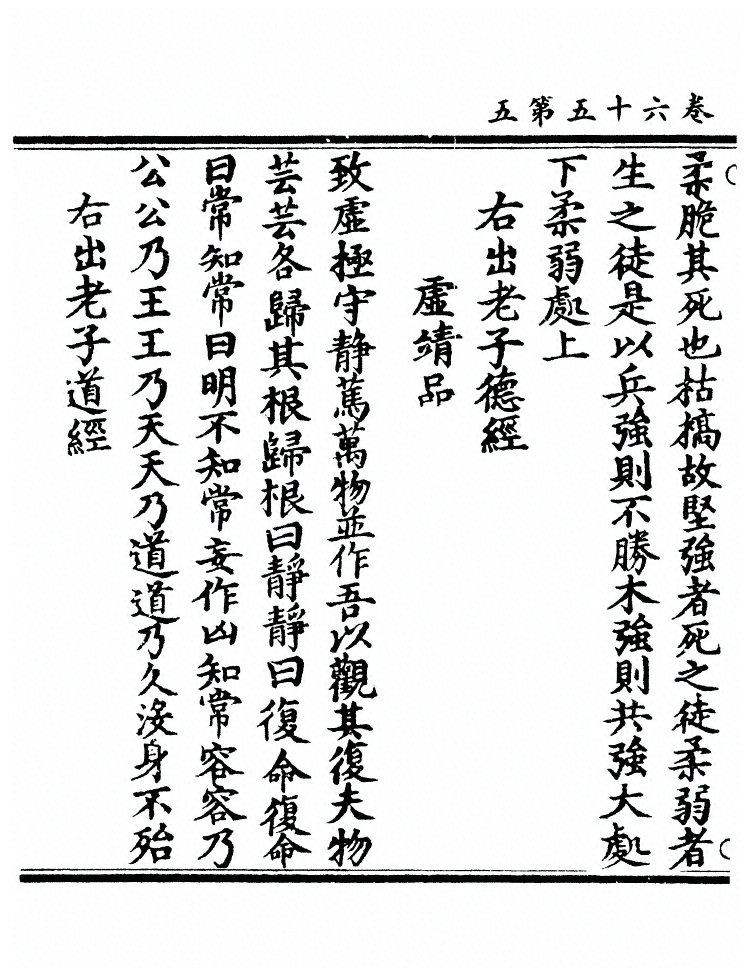 卷六十五第五
柔脆其死也枯槁故堅強者死之徒柔弱者
生之徒是以兵強則不勝木強則共強大處
下柔弱處上
右出老子德經
虛靖品
致虛極守静篤萬物並作吾以觀其復夫物
芸芸各歸其根歸根曰靜靜曰復命復命
曰常知常曰明不知常妄作凶知常容容乃
公公乃王王乃天天乃道道乃久沒身不殆
右出老子道經